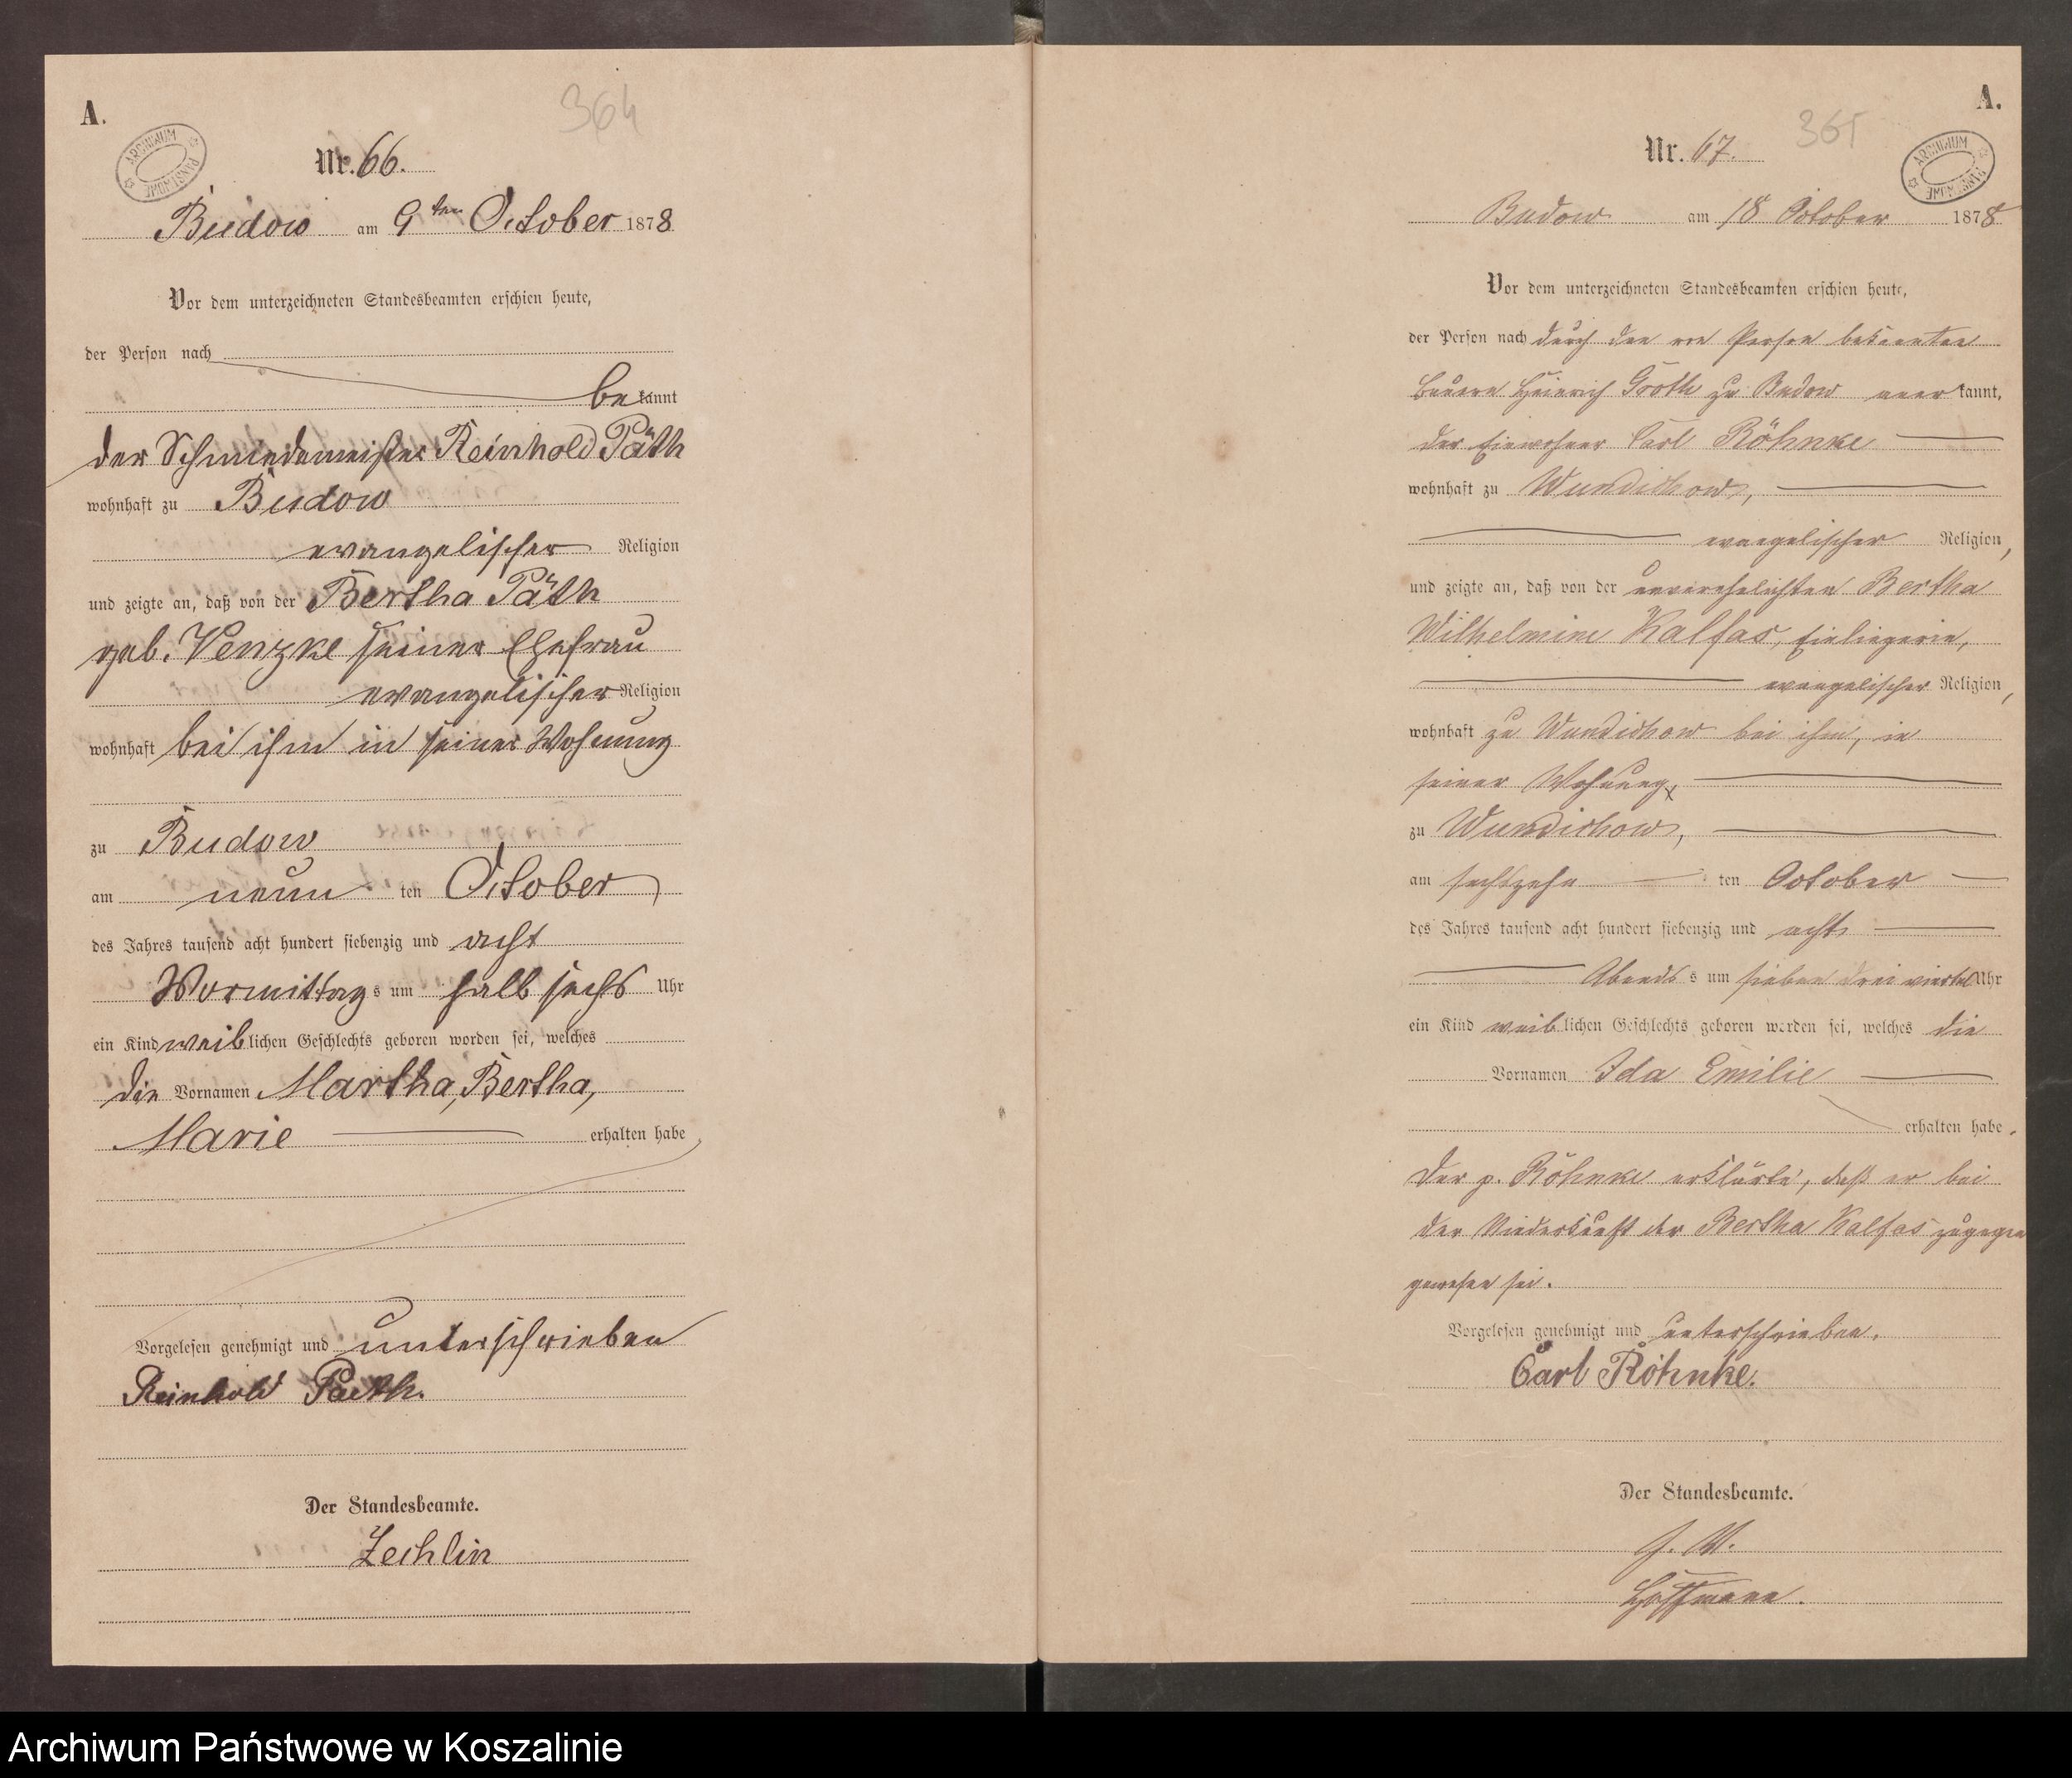 A.
364
ARCHIWUM PAŃSTWOWE
Nr. 66.
Budow am 9ten October 1878
Vor dem unterzeichneten Standesbeamten erschien heute,
der Person nach
bekannt
der Schmiedemeister Reinhold Päth
wohnhaft zu Budow
evangelischer Religion
und zeigte an, daß von der Bertha Päth
geb. Venzke seiner Ehefrau
evangelischer Religion
wohnhaft bei ihm in seiner Wohnung
zu Budow
am neun ten October
des Jahres tausend acht hundert siebenzig und acht
Vormittag s um halb sechs Uhr
ein Kind weiblichen Geschlechts geboren worden sei, welches
die Vornamen Martha, Bertha,
Marie erhalten habe
Vorgelesen genehmigt und unterschrieben
Reinhold Paeth.
Der Standesbeamte.
Zechlin
A.
365
ARCHIWUM PAŃSTWOWE
Nr. 67.
Budow am 18 October 1878
Vor dem unterzeichneten Standesbeamten erschien heute,
der Person nach durch den von Person bekannten
Bauern Heinrich Groth zu Budow anerkannt,
der Einwohner Carl Röhnke
wohnhaft zu Wundichow,
evangelischer Religion,
und zeigte an, daß von der unverehelichten Bertha
Wilhelmine Kalfas, Einliegerin,
evangelischer Religion,
wohnhaft zu Wundichow bei ihm, in
seiner Wohnung,
zu Wundichow,
am sechszehn ten October
des Jahres tausend acht hundert siebenzig und acht
Abends s um sieben drei viertel Uhr
ein Kind weiblichen Geschlechts geboren worden sei, welches die
Vornamen Ida Emilie
erhalten habe.
Der p. Röhnke erklärte, daß er bei
der Niederkunft der Bertha Kalfas zugegen
gewesen sei.
Vorgelesen genehmigt und unterschrieben.
Carl Röhnke.
Der Standesbeamte.
J. V.
Hoffmann.
Archiwum Państwowe w Koszalinie